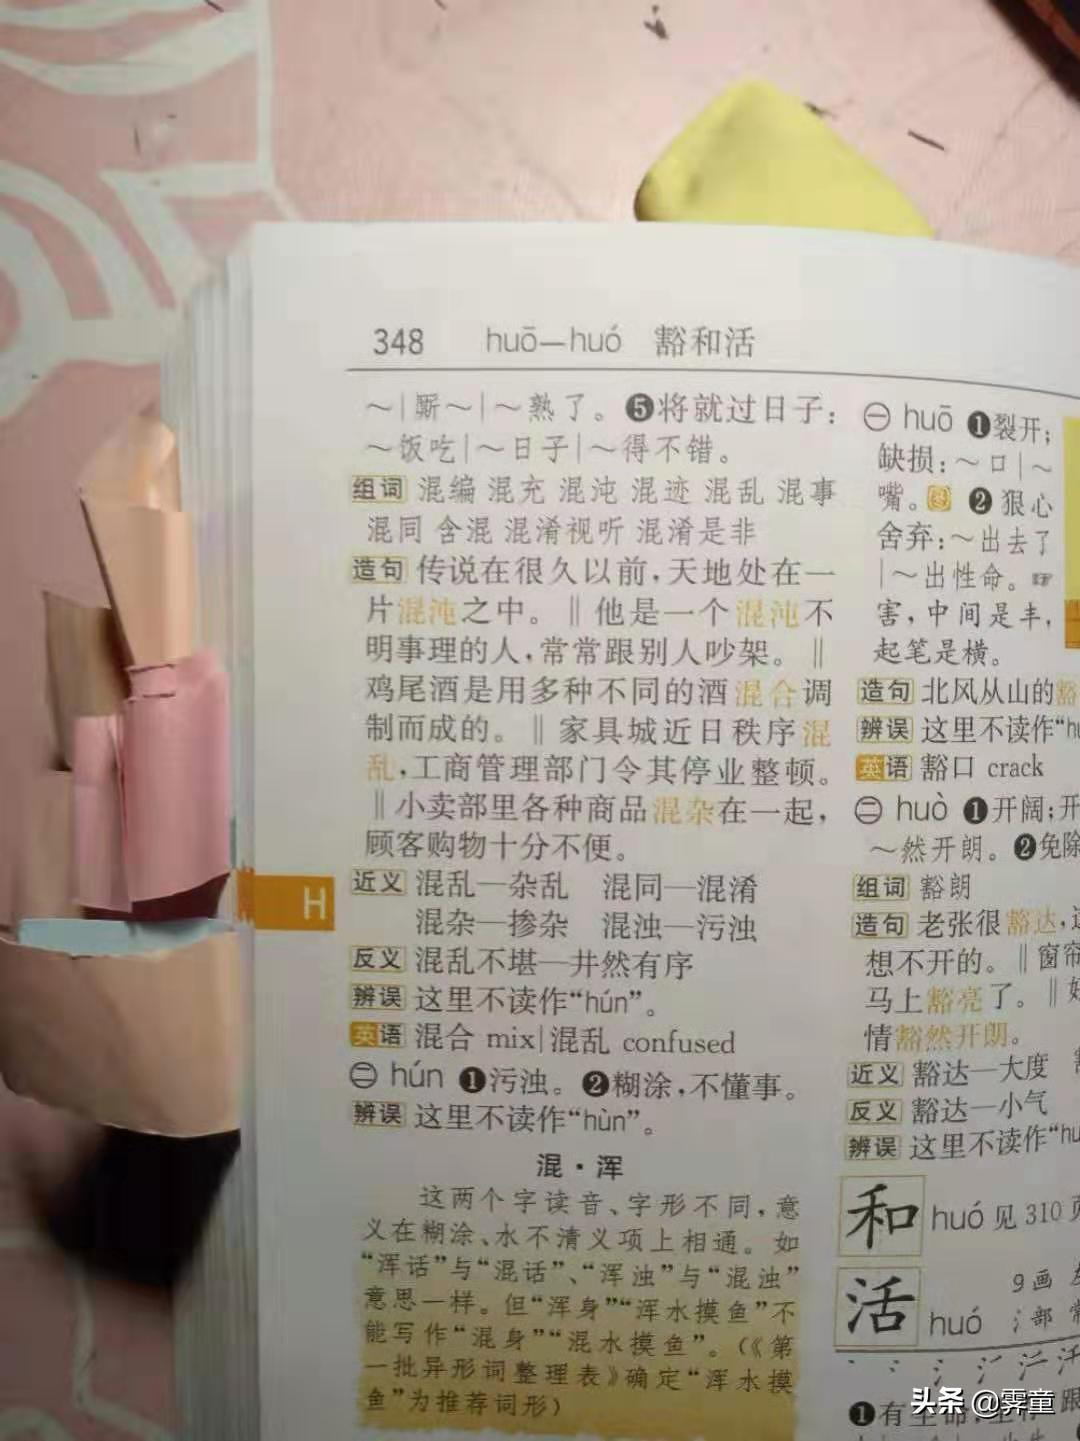 348 huō—huó 豁和活
～|厮～|～熟了。❺将就过日子：
～饭吃|～日子|～得不错。
组词 混编 混充 混沌 混迹 混乱 混事
混同 含混 混淆视听 混淆是非
造句 传说在很久以前，天地处在一
片混沌之中。‖他是一个混沌不
明事理的人，常常跟别人吵架。‖
鸡尾酒是用多种不同的酒混合调
制而成的。‖家具城近日秩序混
乱，工商管理部门令其停业整顿。
‖小卖部里各种商品混杂在一起，
顾客购物十分不便。
近义 混乱—杂乱 混同—混淆
混杂—掺杂 混浊—污浊
反义 混乱不堪—井然有序
辨误 这里不读作“hún”。
英语 混合 mix|混乱 confused
㊁ hún ❶污浊。❷糊涂，不懂事。
辨误 这里不读作“hùn”。
混·浑
这两个字读音、字形不同，意
义在糊涂、水不清义项上相通。如
“浑话”与“混话”、“浑浊”与“混浊”
意思一样。但“浑身”“浑水摸鱼”不
能写作“混身”“混水摸鱼”。（《第
一批异形词整理表》确定“浑水摸
鱼”为推荐词形）
H
㊀ huō ❶裂开；
缺损：～口|～
嘴。图 ❷狠心
舍弃：～出去了
|～出性命。☞
害，中间是丰，
起笔是横。
造句 北风从山的豁
辨误 这里不读作“hu
英语 豁口 crack
㊁ huò ❶开阔；开
～然开朗。❷免除
组词 豁朗
造句 老张很豁达，
想不开的。‖窗帘
马上豁亮了。‖
情豁然开朗。
近义 豁达—大度
反义 豁达—小气
辨误 这里不读作“hu
和 huó 见 310 页
活 huó 9画
氵部
❶有生命，生存
头条 @霁童